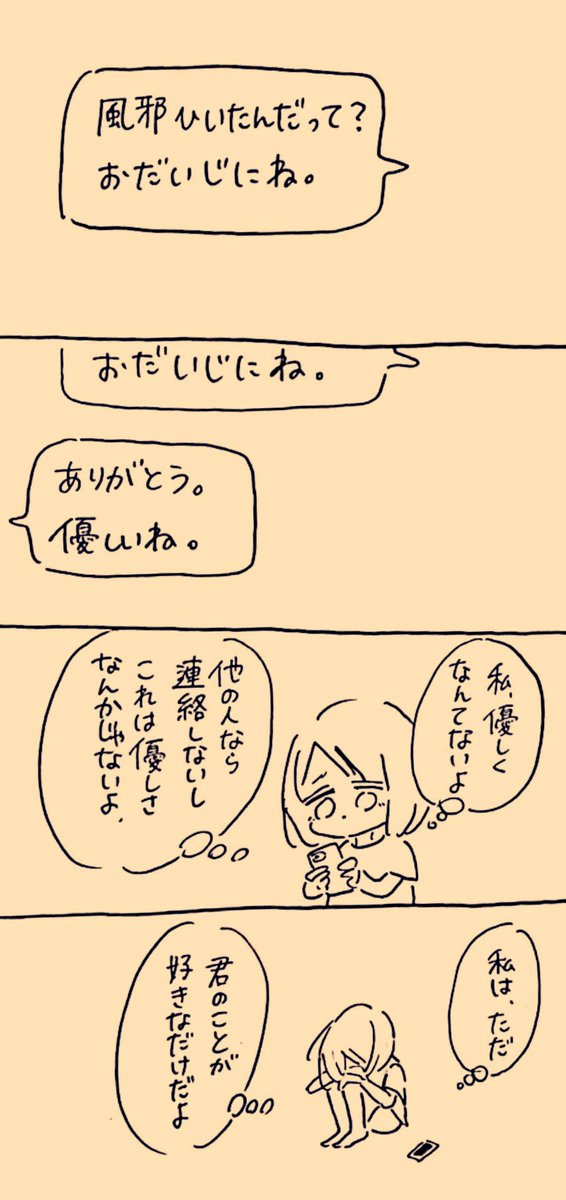 風邪ひいたんだって？
おだいじにね。
おだいじにね。
ありがとう。
優しいね。
私、優しく
なんてないよ
他の人なら
連絡しないし
これは優しさ
なんかじゃないよ、
私は、ただ
君のことが
好きなだけだよ